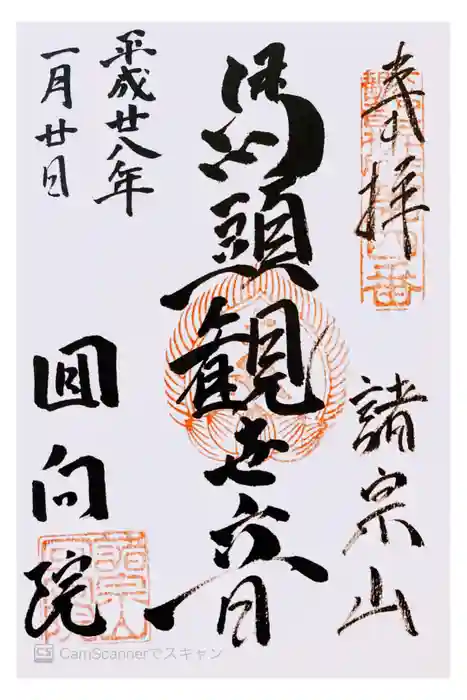 奉拝
諸宗山
馬頭観世音
平成廿八年
一月廿日
回向院
CS CamScannerでスキャン